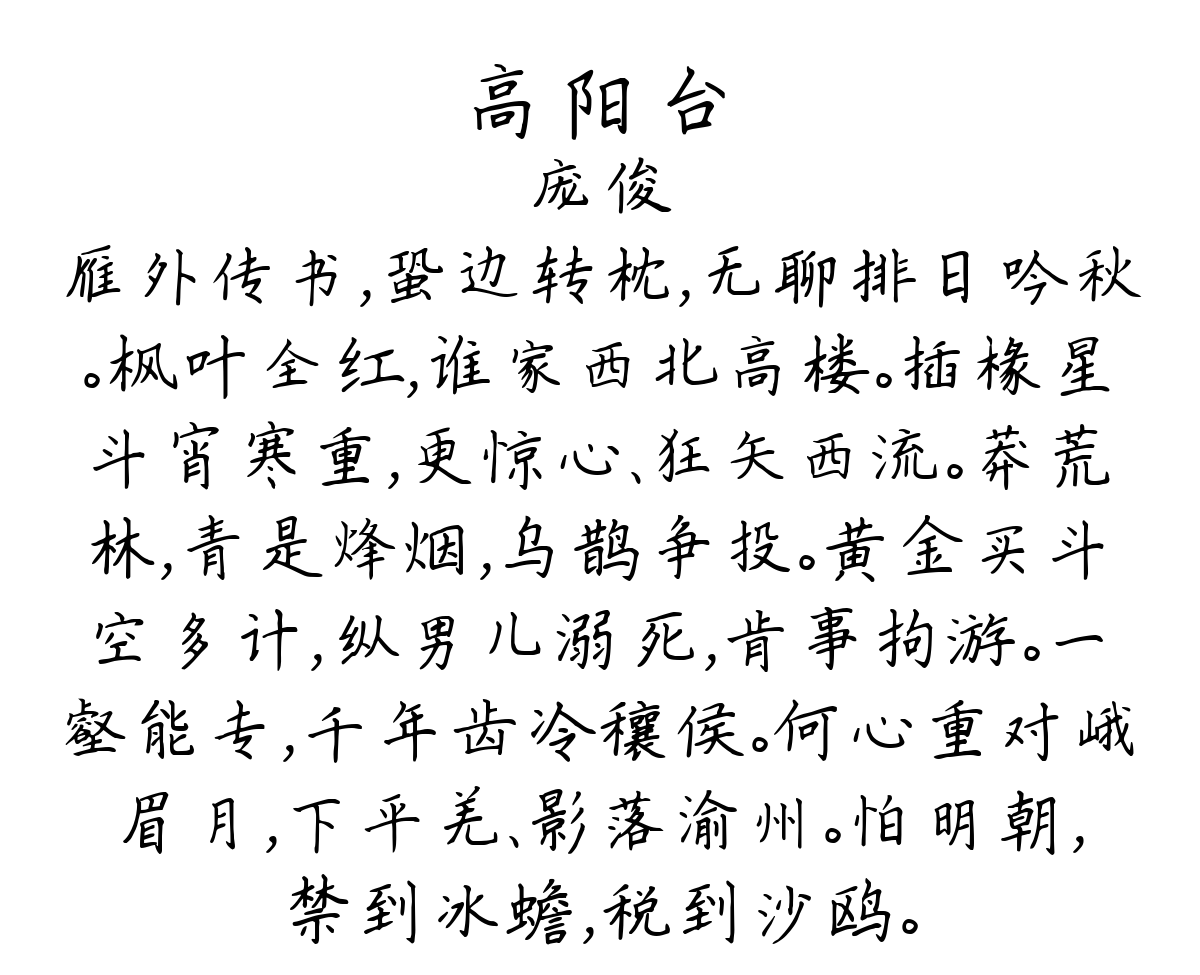 高阳台
庞俊
雁外传书,蛩边转枕,无聊排日吟秋
。枫叶全红,谁家西北高楼。插椽星
斗宵寒重,更惊心、狂矢西流。莽荒
林,青是烽烟,乌鹊争投。黄金买斗
空多计,纵男儿溺死,肯事拘游。一
壑能专,千年齿冷穰侯。何心重对峨
眉月,下平羌、影落渝州。怕明朝,
禁到冰蟾,税到沙鸥。